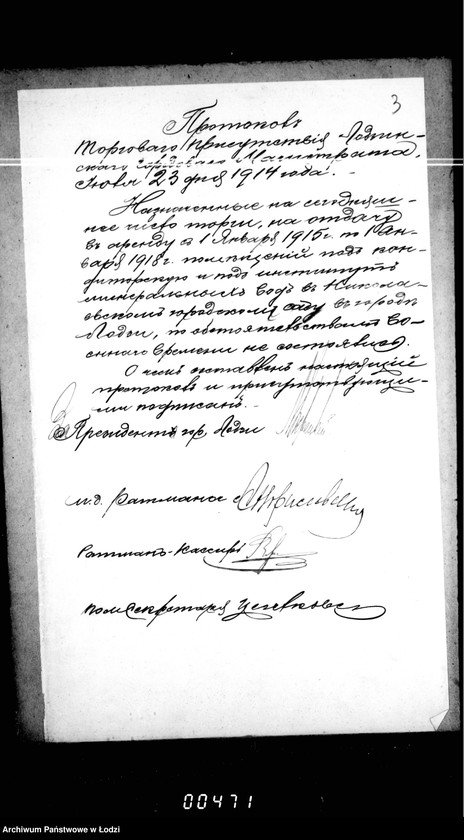 3
Протоколъ
Торговаго Присутствія Лодзин-
скаго городового Магистрата,
Іюля 23 дня 1914 года.
Назначенные на сегодняш-
нее число торги, на отдачу
въ аренду съ 1 Января 1915 г. по 1 Ян-
варя 1918 г. помѣщеній подъ кон-
диторскую и подъ институтъ
минеральныхъ водъ въ Никола-
евскомъ городскомъ саду въ городѣ
Лодзи, по обстоятельствамъ во-
еннаго времени не состоялись.
О чемъ составленъ настоящій
протоколъ и присутствующи-
ми подписанъ.
За Президентъ гор. Лодзи
и. д. Ратмана
Ратманъ-Кассиръ
Пом. Секретаря
00471
Archiwum Państwowe w Łodzi